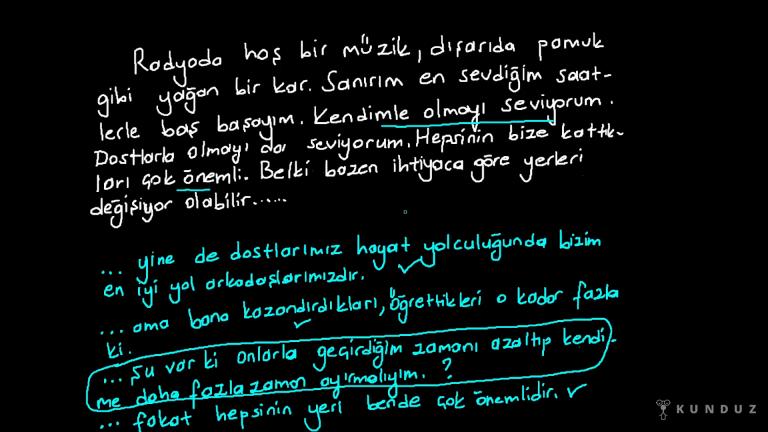 Radyoda hoş bir müzik, dışarıda pamuk
gibi yağan bir kar. Sanırım en sevdiğim saat-
lerle baş başayım. Kendimle olmayı seviyorum.
Dostlarla olmayı da seviyorum. Hepsinin bize kattık-
ları çok önemli. Belki bazen ihtiyaca göre yerleri
değişiyor olabilir......
... yine de dostlarımız hayat yolculuğunda bizim
en iyi yol arkadaşlarımızdır.
... ama bana kazandırdıkları, öğrettikleri o kadar fazla
ki.
... şu var ki onlarla geçirdiğim zamanı azaltıp kendi-
me daha fazla zaman ayırmalıyım. ?
... fakat hepsinin yeri bende çok önemlidir.
KUNDUZ